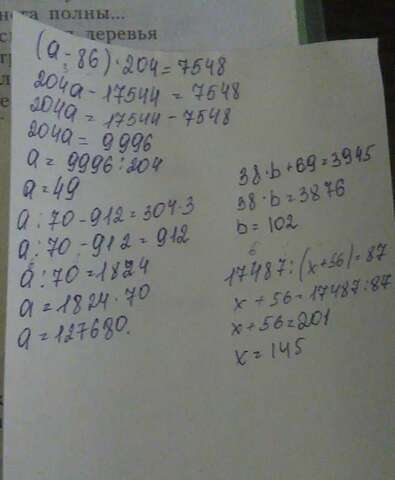 нога полны...
деревья
(a - 86) · 204 = 7548
204a - 17544 = 7548
204a = 17544 - 7548
204a = 9996
a = 9996 : 204
a = 49
a : 70 - 912 = 304 · 3
a : 70 - 912 = 912
a : 70 = 1824
a = 1824 · 70
a = 127680.
38 · b + 69 = 3945
38 · b = 3876
b = 102
17487 : (x + 56) = 87
x + 56 = 17487 : 87
x + 56 = 201
x = 145